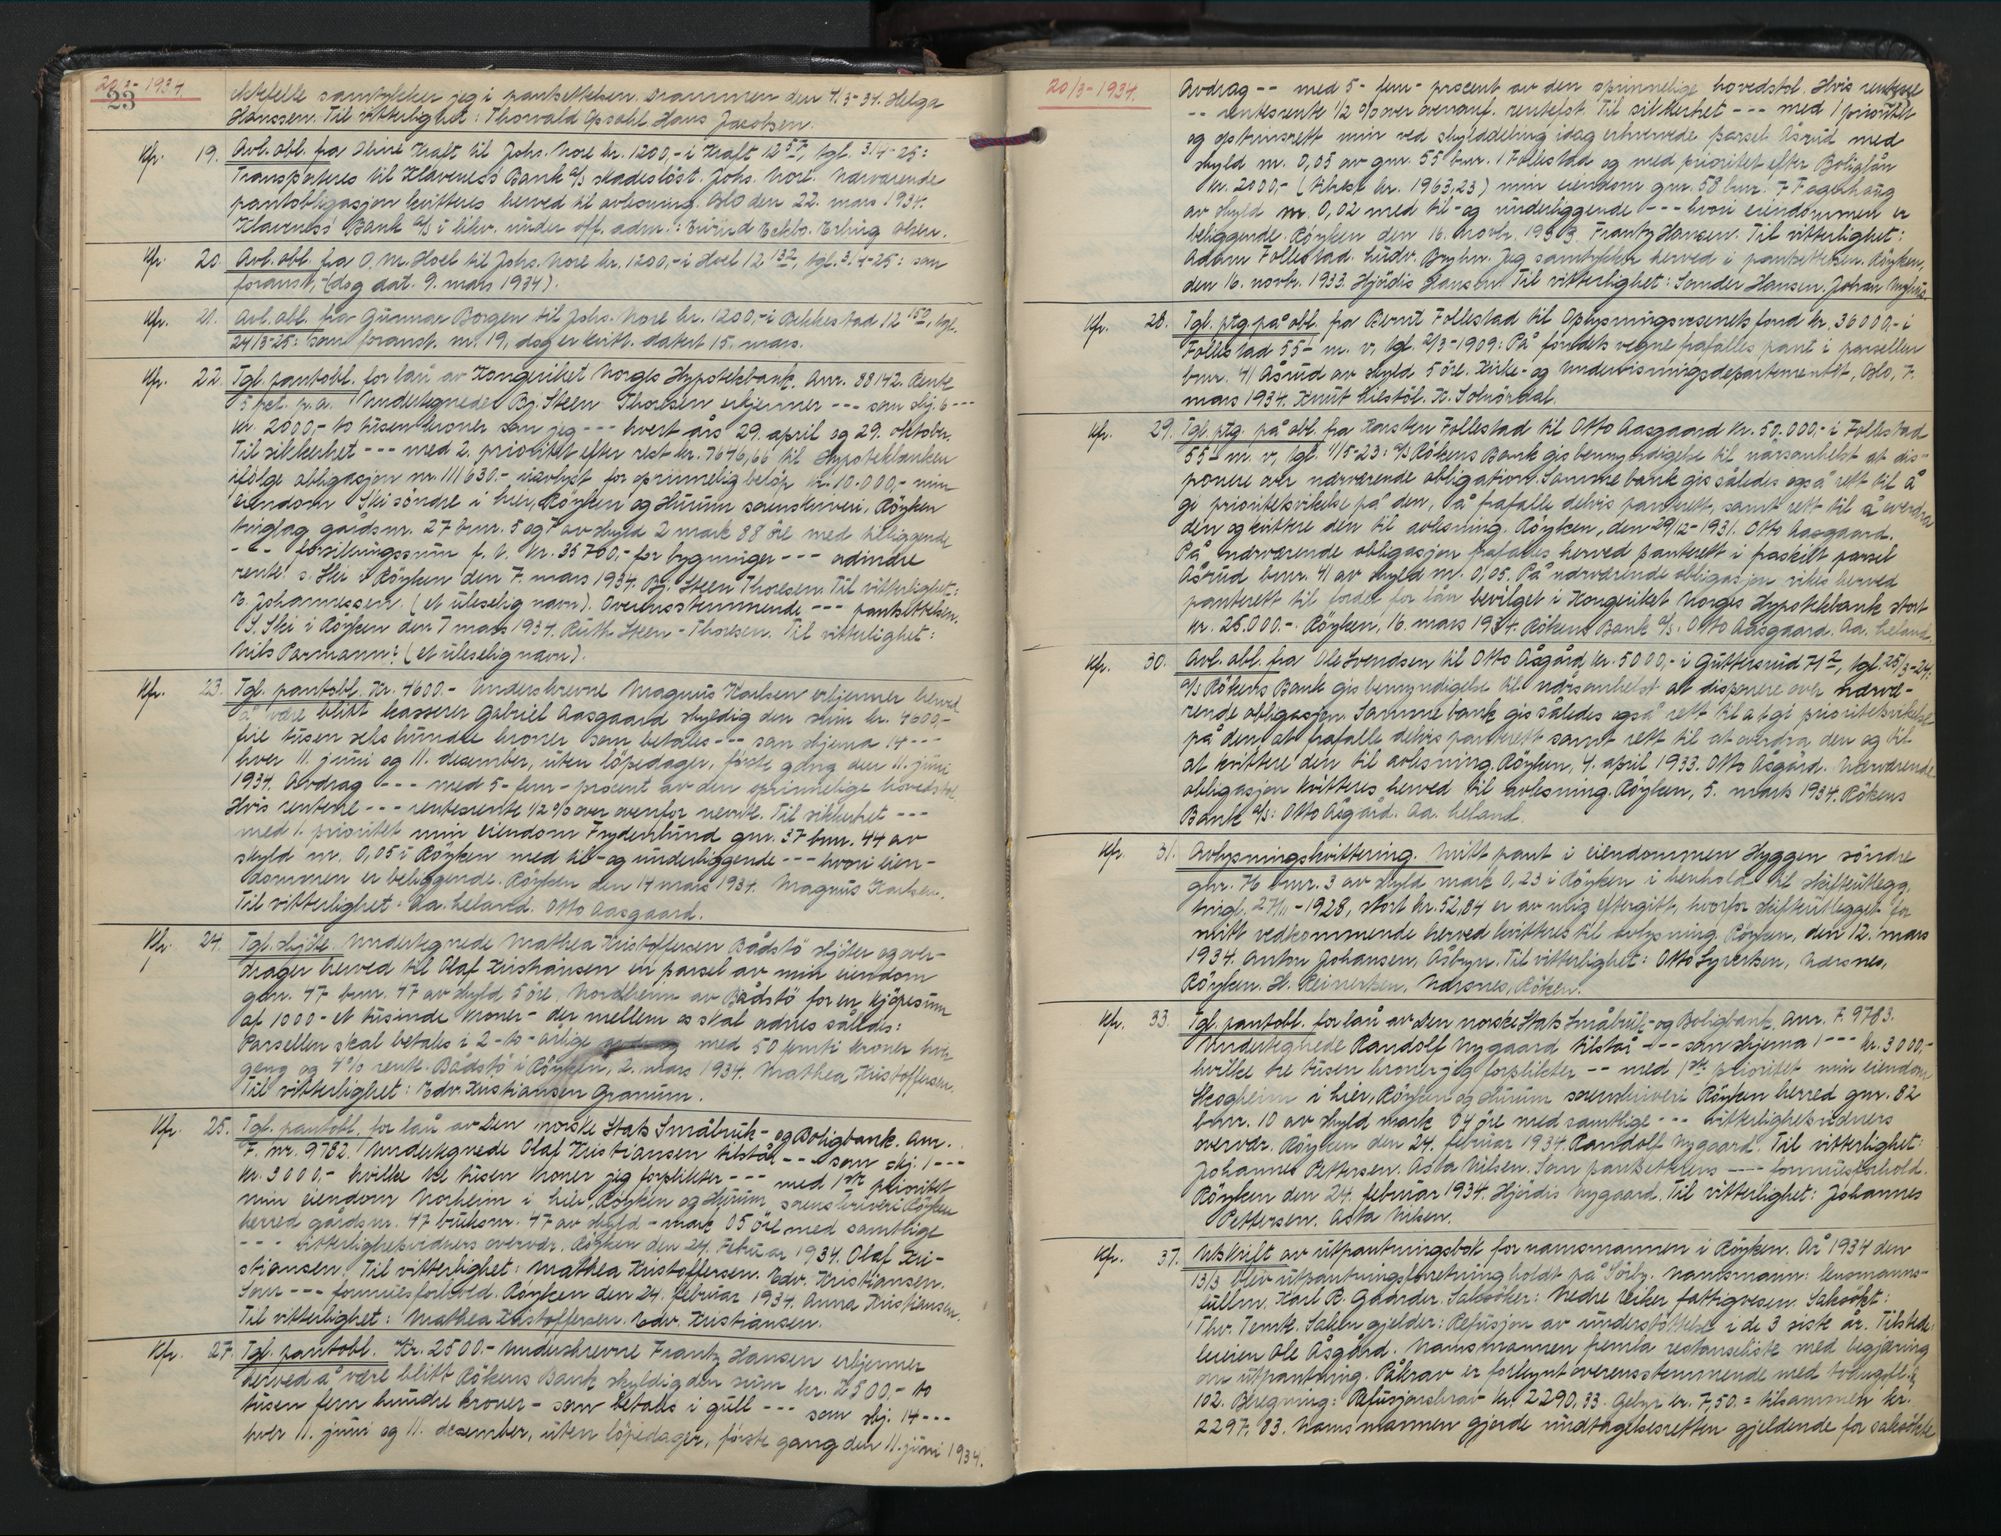 20/3-1934.
23
Ektefelle samtykker jeg i pantsettelsen. Drammen den 7.3-34. Helga
Hanssen. Til vitterlighet: Thorvald Opsahl. Hans Jacobsen.
Kfr. 19. Avl. obl. fra Kraft til Johs. Nore kr. 1200,- i Kraft 12 57, tgl. 3/4-25:
Transporteres til Klaveness Bank A/S skadesløst. Johs. Nore. Nærværende
pantobligasjon kvitteres herved til avlesning. Oslo den 22. mars 1934.
Klaveness Bank A/S i likv. under off. adm.: Eivind Eckbo. Erling Olsen.
Kfr. 20. Avl. obl. fra O. M. Hoel til Johs. Nore kr. 1200,- i Hoel 12 132, tgl. 3/4-25: som
foranst.- (dog dat. 9. mars 1934).
Kfr. 21. Avl. obl. fra Gunnar Borgen til Johs. Nore kr. 1200,- i Bekkestad 12 150, tgl.
24/3-25: som foranst. nr. 19, dog er kvitt. datert 15. mars.
Kfr. 22. Tgl. pantobl. for lån av Kongeriket Norges Hypotekbank. Anr. 88142. Rente
5 pct. p.a. Undertegnede Bj. Steen Thoresen erkjenner --- som skj. 6 ---
kr. 2000,- to tusen kroner som jeg --- hvert års 29. april og 29. oktober.
Til sikkerhet --- med 2. prioritet efter rest kr. 7646,66 til Hypotekbanken
ifølge obligasjon nr. 111630.- uavlyst for oprinnelig beløp kr. 10.000,- min
eiendom Ski söndre i Lier, Röyken og Hurum sorenskriveri, Röyken
tinglag gårdsnr. 27 bnr. 5 og av skyld 2 mark 88 öre med tilliggende
--- forsikringssum f. v. kr. 35700,- for bygninger --- admindre
rente! s. Ski i Röyken den 7. mars 1934. Bj. Steen Thoresen. Til vitterlighet:
E. Johannessen. (et uleselig navn). Overensstemmende --- pantsettelsen.
S. Ski i Röyken den 7 mars 1934. Ruth Steen-Thoresen. Til vitterlighet:
Nils Parmann? (et uleselig navn).
Kfr. 23. Tgl. pantobl. Kr. 4600.- Underskrevne Magnus Karlsen erkjenner herved
å være blitt kasserer Gabriel Aasgaard skyldig den sum kr. 4600,-
fire tusen seks hundre kroner som betales --- som skjema 14 ---
hver 11. juni og 11. desember, uten löpedager, förste gang den 11. juni
1934. Avdrag --- med 5- fem- procent av den oprinnelige hovedstol.
Hvis rentene --- rentesrente 1/2 % over ovenfor nevnte. Til sikkerhet ---
med 1. prioritet min eiendom Frydenlund gnr. 37 bnr. 44 av
skyld m. 0,05 i Röyken med til- og underliggende --- hvori eien-
dommen er beliggende. Röyken den 14 mars 1934. Magnus Karlsen.
Til vitterlighet: Aa. Leland. Otto Aasgaard.
Kfr. 24. Tgl. skjöte. Undertegnede Mathea Kristoffersen Bådstö skjöter og over-
drager herved til Olaf Kristiansen en parsel av min eiendom
gnr. 47 bnr. 47 av skyld 5 öre. Nordheim av Bådstö for en kjöpesum
af 1000- et tusinde kroner- der mellem os skal ordnes således:
Parsellen skal betales i 2-to-årlige avdrag med 50 femti kroner hver
gang og 4% rente. Bådstö i Röyken, 2. mars 1934. Mathea Kristoffersen.
Til vitterlighet: Edv. Kristiansen Granum.
Kfr. 25. Tgl. pantobl. for lån av Den norske Stats Småbruk- og Boligbank. Anr.
F. nr. 9782. Undertegnede Olaf Kristiansen tilstår --- som skj. 1 ---
kr. 3000,- hvilke tre tusen kroner jeg forplikter --- med 1ste prioritet
min eiendom Norheim i Lier, Röyken og Hurum sorenskriveri Röyken
herred gårdsnr. 47 bruksnr. 47 av skyld - mark 05 öre med samtlige
--- vitterlighetsvidners overvær. Röyken den 24. februar 1934. Olaf Kri-
stiansen. Til vitterlighet: Mathea Kristoffersen. Edv. Kristiansen.
Som --- formuesforhold. Röyken den 24. februar 1934. Anna Kristiansen.
Til vitterlighet: Mathea Kristoffersen. Edv. Kristiansen.
Kfr. 27. Tgl. pantobl. Kr. 2500.- Underskrevne Frantz Hansen erkjenner
herved å være blitt Rökens Bank skyldig den sum kr. 2500,- to
tusen fem hundre kroner- som betales i gull --- som skj. 14 ---
hver 11. juni og 11. desember, uten löpedager, förste gang den 11. juni 1934.
20/3-1934.
Avdrag -- med 5- fem- procent av den oprinnelige hovedstol. Hvis rentene
-- rentesrente 1/2 % over ovenanf. rentefot. Til sikkerhet --- med 1 prioritet
og optrinsrett min ved skylddeling idag erhvervede parsel Åsrud med
skyld m. 0,05 av gnr. 55 bnr. 1 Follestad og med prioritet efter Boliglån
kr. 2000,- (tilrest kr. 1963,23) min eiendom gnr. 58 bnr. 7 Fagerhaug
av skyld m. 0,02 med til- og underliggende --- hvori eiendommen er
beliggende. Röyken den 16. novbr. 1933. Frantz Hansen. Til vitterlighet:
Adam Follestad. Ludv. Bryhn. Jeg samtykker herved i pantsettelsen. Röyken,
den 16. novbr. 1933. Hjördis Hansen. Til vitterlighet: Sander Hansen. Johan Myhre.
Kfr. 28. Tgl. ptg. på obl. fra Bernt Follestad til Oplysningsvesenets fond kr. 36000,- i
Follestad 55- m. v, tgl. 2/3-1909: På fondets vegne frafalles pant i parsellen
bnr. 41 Åsrud av skyld 5 öre. Kirke- og Undervisningsdepartementet, Oslo, 7.
mars 1934. Knut Liestöl. K. Solnördal.
Kfr. 29. Tgl. ptg. på obl. fra Karsten Follestad til Otto Aasgaard kr. 50.000,- i Follestad
55- m. v, tgl. 1/5-23: A/S Rökens Bank gis bemyndigelse til nårsomhelst at dis-
ponere over nærværende obligation. Samme bank gis således også rett til å
gi prioritetsvikelse på den, å frafalle delvis panterett, samt rett til å overdra
den og kvittere den til avlesning. Röyken, den 29/12-1931. Otto Aasgaard.
På nærværende obligasjon frafalles herved panterett i fraskilt parsel
Åsrud bnr. 41 av skyld m. 0,05. På nærværende obligasjon vikes herved
panterett til fordel for lån bevilget i Kongeriket Norges Hypotekbank stort
kr. 25.000.-. Röyken, 16. mars 1934. Rökens Bank A/S. Otto Aasgaard. Aa. Leland.
Kfr. 30. Avl. obl. fra Ole Svendsen til Otto Åsgård kr. 5000,- i Guttersrud 71 2, tgl. 25/3-24:
A/S Rökens Bank gis bemyndigelse til nårsomhelst at disponere over nærvæ-
rende obligasjon. Samme bank gis således også rett til at gi prioritetsvikelse
på den, at frafalle delvis panterett samt rett til at overdra den og til
at kvittere den til avlesning. Röyken, 4. april 1933. Otto Åsgård. Nærværende
obligasjon kvitteres herved til avlesning. Röyken, 5. mars 1934. Rökens
Bank A/S: Otto Åsgård. Aa. Leland.
Kfr. 31. Avlysningskvittering. Mitt pant i eiendommen Hyggen söndre
gnr. 76 bnr. 3 av skyld mark 0,23 i Röyken i henhold til skifteutlegg,
tingl. 27/11-1928, stort kr. 52,84 er av mig eftergitt, hvorfor skifteutlegget for
mitt vedkommende herved kvitteres til avlysning. Röyken, den 12. mars
1934. Anton Johansen, Åsbyn. Til vitterlighet: Otto Syvertsen, Nærsnes,
Röyken. H. Reinertsen, Nærsnes, Röken.
Kfr. 33. Tgl. pantobl. for lån av Den norske Stats Småbruk- og Boligbank. Anr. F. 9783.
Undertegnede Randolf Nygaard tilstår --- som skjema 1 --- kr. 3000,-
hvilke tre tusen kroner jeg forplikter -- med 1ste prioritet min eiendom
Skogheim i Lier, Röyken og Hurum sorenskriveri Röyken herred gnr. 82
bnr. 10 av skyld mark 04 öre med samtlige --- vitterlighetsvidners
overvær. Röyken den 24. februar 1934. Randolf Nygaard. Til vitterlighet:
Johannes Pettersen. Asta Nilsen. Som pantsetterens --- formuesforhold.
Röyken den 24. februar 1934. Hjördis Nygaard. Til vitterlighet: Johannes
Pettersen. Asta Nilsen.
Kfr. 37. Utskrift av utpantningsbok for namsmannen i Röyken. År 1934 den
13/3 blev utpantningsforretning holdt på Sörby. Namsmann: lensmanns-
fullm. Karl R. Gaarder. Saksöker: Nedre Eiker fattigvesen. Saksökt:
Thv. Temte. Saken gjelder: Refusjon av understöttelse i de 3 siste år. Tilstede:
Ole Åsgård. Namsmannen fremla restanseliste med begjæring
om utpantning. Påkrav er forkynt overensstemmende med tvangsfl. §
102. Beregning: Refusjonskrav kr. 2290,33. Gebyr kr. 7,50. = tilsammen kr.
2297,83. Namsmannen gjorde undtagelsesretten gjeldende for saksökte